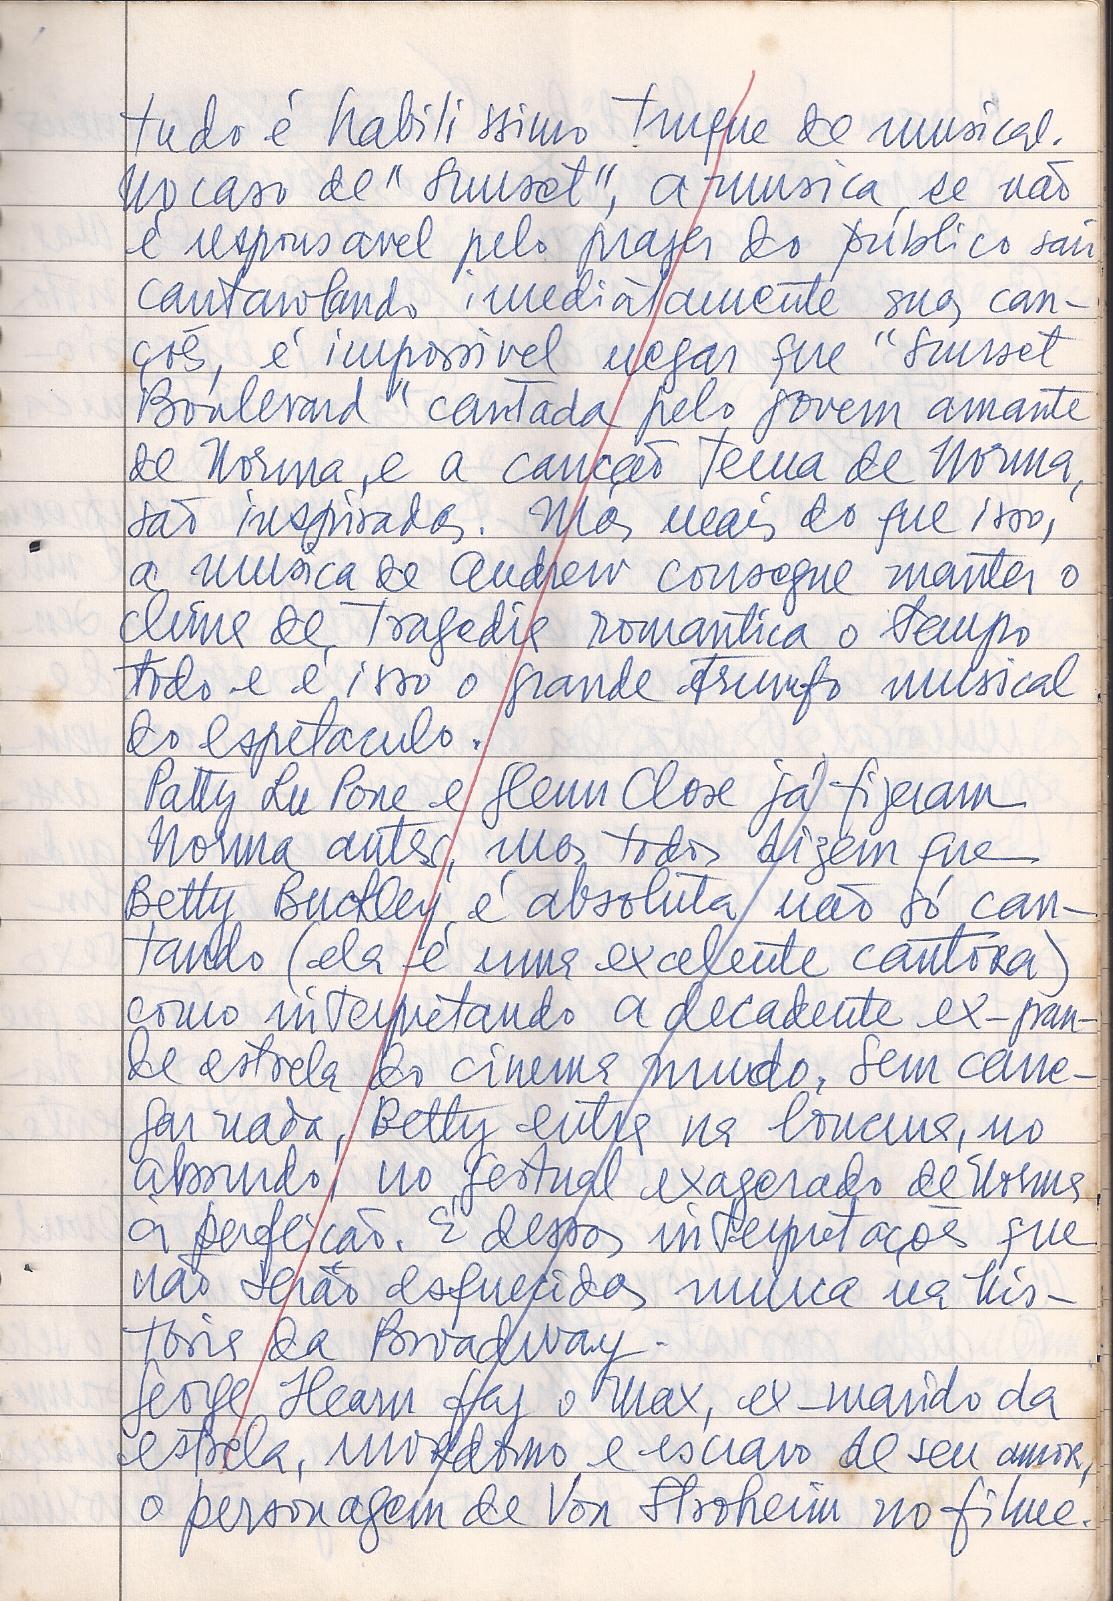 tudo é habilissimo truque de musical.
No caso de "Sunset", a musica, se não
é responsavel pelo prazer do público sair
cantarolando imediatamente suas can-
ções, é impossivel negar que "Sunset
Boulevard" cantada pelo jovem amante
de Norma, e a canção tema de Norma,
são inspiradas. Mas mais do que isso,
a musica de Andrew consegue manter o
clima de tragedia romantica o tempo
todo e é isso o grande trunfo musical
do espetaculo.
Patty Lu Pone e Glenn Close já fizeram
Norma antes, mas todos dizem que
Betty Buckley é absoluta não só can-
tando (ela é uma excelente cantora)
como interpretando a decadente ex-gran-
de estrela do cinema mudo. Sem carre-
gar nada, Betty entra na loucura, no
absurdo, no gestual exagerado de Norma
à perfeição. É dessas interpretações que
não serão esquecidas nunca na his-
toria da Broadway.
George Hearn faz o Max, ex-marido da
estrela, mordomo e escravo de seu amor,
o personagem de Von Stroheim no filme.